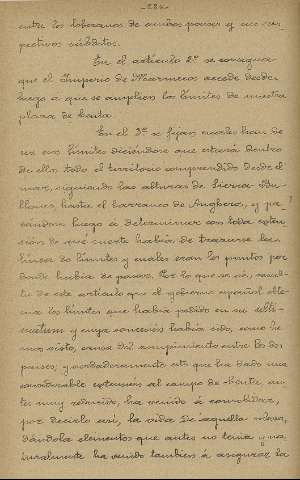 -224-
entre los soberanos de ambos paises y sus res-
pectivos súbditos.
En el artículo 2º se consigna
que el Imperio de Marruecos accede desde
luego a que se amplien los límites de nuestra
plaza de Ceuta.
En el 3º se fijan cuales han de
ser esos límites diciéndose que estará dentro
de ellos todo el territorio comprendido desde el
mar, siguiendo las alturas de Sierra Bu-
llones, hasta el barranco de Anghera, y pa-
sandose luego á determinar con toda exten-
sión de qué suerte habia de trazarse la
linea de límites y cuales eran los puntos por
donde habia de pasar. Por lo que se vé, resul-
ta de este artículo que el gobierno español obte-
nia los límites que habia pedido en su ulti-
matum y cuya concesión habia sido, como he-
mos visto, causa del rompimiento entre los dos
paises, y verdaderamente esto que ha dado una
considerable extension al campo de Ceuta, an-
tes muy reducido, ha venido á consolidar,
por decirlo así, la vida de aquella plaza,
dándola elementos que antes no tenia y na-
turalmente ha venido tambien á asegurar la